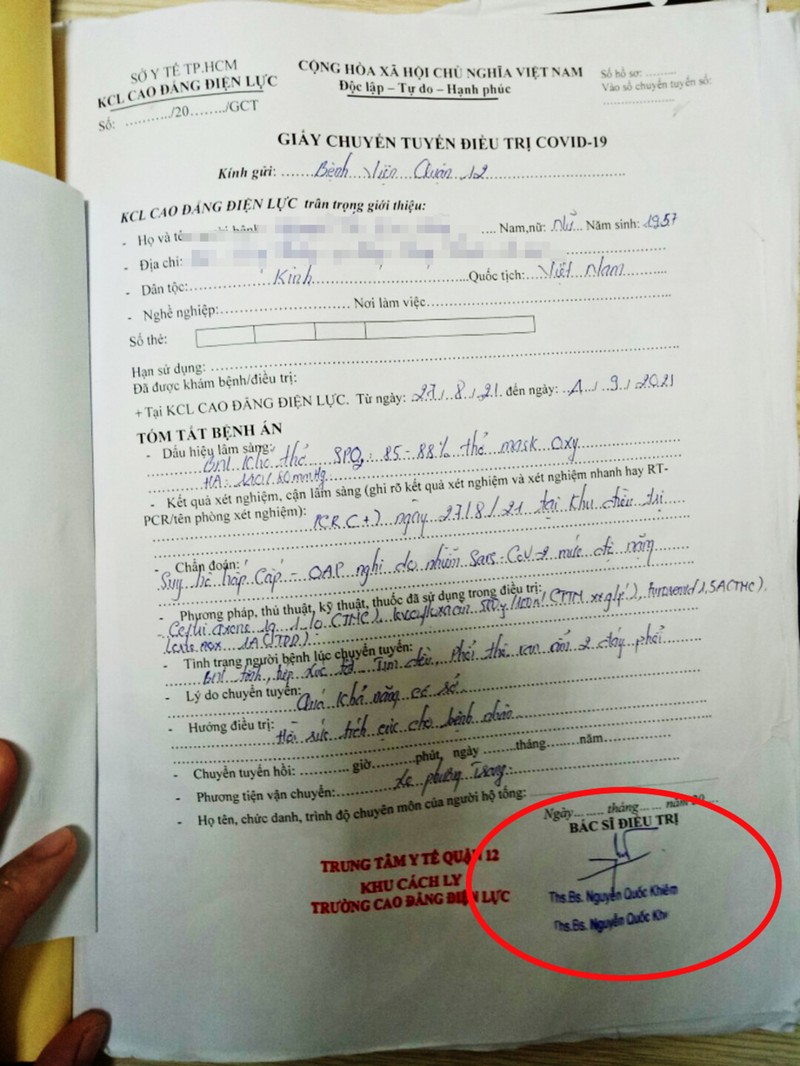 SỞ Y TẾ TP.HCM
KCL CAO ĐẲNG ĐIỆN LỰC
Số: ........../20......../GCT
CỘNG HÒA XÃ HỘI CHỦ NGHĨA VIỆT NAM
Độc lập – Tự do – Hạnh phúc
Số hồ sơ: .........
Vào sổ chuyển tuyến số:
GIẤY CHUYỂN TUYẾN ĐIỀU TRỊ COVID-19
Kính gửi: Bệnh Viện Quận 12
KCL CAO ĐẲNG ĐIỆN LỰC trân trọng giới thiệu:
- Họ và tên Nam,nữ: Nữ Năm sinh: 1957
- Địa chỉ:
- Dân tộc: Kinh Quốc tịch: Việt Nam
- Nghề nghiệp: Nơi làm việc
Số thẻ:
Hạn sử dụng:
Đã được khám bệnh/điều trị:
+ Tại KCL CAO ĐẲNG ĐIỆN LỰC. Từ ngày: 27/8/21 đến ngày: 1/9/2021
TÓM TẮT BỆNH ÁN
- Dấu hiệu lâm sàng:
BN khó thở SPO2: 85-88% thở mask oxy
HA: mmHg
- Kết quả xét nghiệm, cận lâm sàng (ghi rõ kết quả xét nghiệm và xét nghiệm nhanh hay RT-
PCR/tên phòng xét nghiệm): PCR (+) ngày 27/8/21 tại khu điều trị
- Chẩn đoán:
Suy hô hấp cấp - OAP nghi do nhiễm Sars-CoV-2 mức độ nặng
- Phương pháp, thủ thuật, kỹ thuật, thuốc đã sử dụng trong điều trị:
- Tình trạng người bệnh lúc chuyển tuyến:
BN tỉnh, tiếp xúc tốt Tim đều, Phổi thô ran ẩm 2 đáy phổi
- Lý do chuyển tuyến: Quá khả năng cơ sở
- Hướng điều trị: Hồi sức tích cực cho bệnh nhân
- Chuyển tuyến hồi: ........... giờ.........phút, ngày ........tháng........năm
- Phương tiện vận chuyển: Xe phương Trang
- Họ tên, chức danh, trình độ chuyên môn của người hộ tống:
Ngày...... tháng...... năm 20...
BÁC SĨ ĐIỀU TRỊ
TRUNG TÂM Y TẾ QUẬN 12
KHU CÁCH LY
TRƯỜNG CAO ĐẲNG ĐIỆN LỰC
Ths.Bs. Nguyễn Quốc Khiêm
Ths.Bs. Nguyễn Quốc Khi